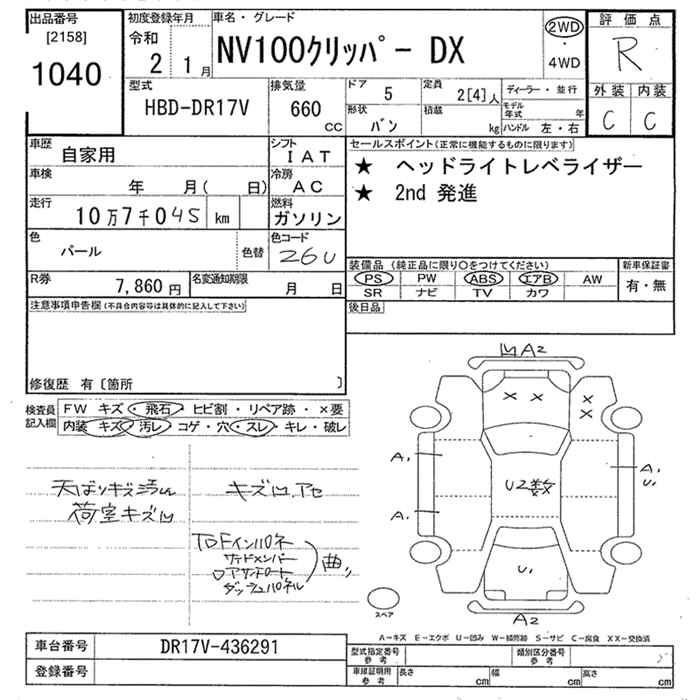 出品番号
[2158]
1040
初度登録年月
令和
2 1月
車名・グレード
NV100クリッパー DX
2WD
・
4WD
評価点
R
外装 内装
C C
型式
HBD-DR17V
排気量
660
CC
ドア
5
定員
2[4]人
形状
バン
積載
kg
ディーラー・並行
モデル年式 年
ハンドル 左・右
車歴
自家用
シフト
IAT
車検
年 月( 日)
冷房
AC
走行
10万7千045 km
燃料
ガソリン
色
パール
色替
色コード
26U
R券
7,860円
名変通知期限
月 日
セールスポイント(正常に機能するものに限ります)
★ ヘッドライトレベライザー
★ 2nd 発進
装備品(純正品に限り○をつけてください)
PS PW ABS エアB AW
SR ナビ TV カワ
新車保証書
有・無
後日品
注意事項申告欄(不具合内容等は具体的に記入して下さい)
修復歴 有〔箇所 〕
検査員記入欄
FW キズ・飛石・ヒビ割・リペア跡・×要
内装 キズ・汚レ・コゲ・穴・スレ・キレ・破レ
天ばりキズ汚れ
荷室キズ凹
キズ凹.アセ
インパネ
サイドメンバー
ダッシュパネル
曲り
凹A2
× ×
×
×
A1
A1
A1
U1
U2数
U1
A2
スペア
A-キズ E-エクボ U-凹み W-補修跡 S-サビ C-腐食 XX-交換済
車台番号
DR17V-436291
登録番号
型式指定番号
参考
類別区分番号
参考
車庫証明用
参考
長さ cm
幅 cm
高さ cm